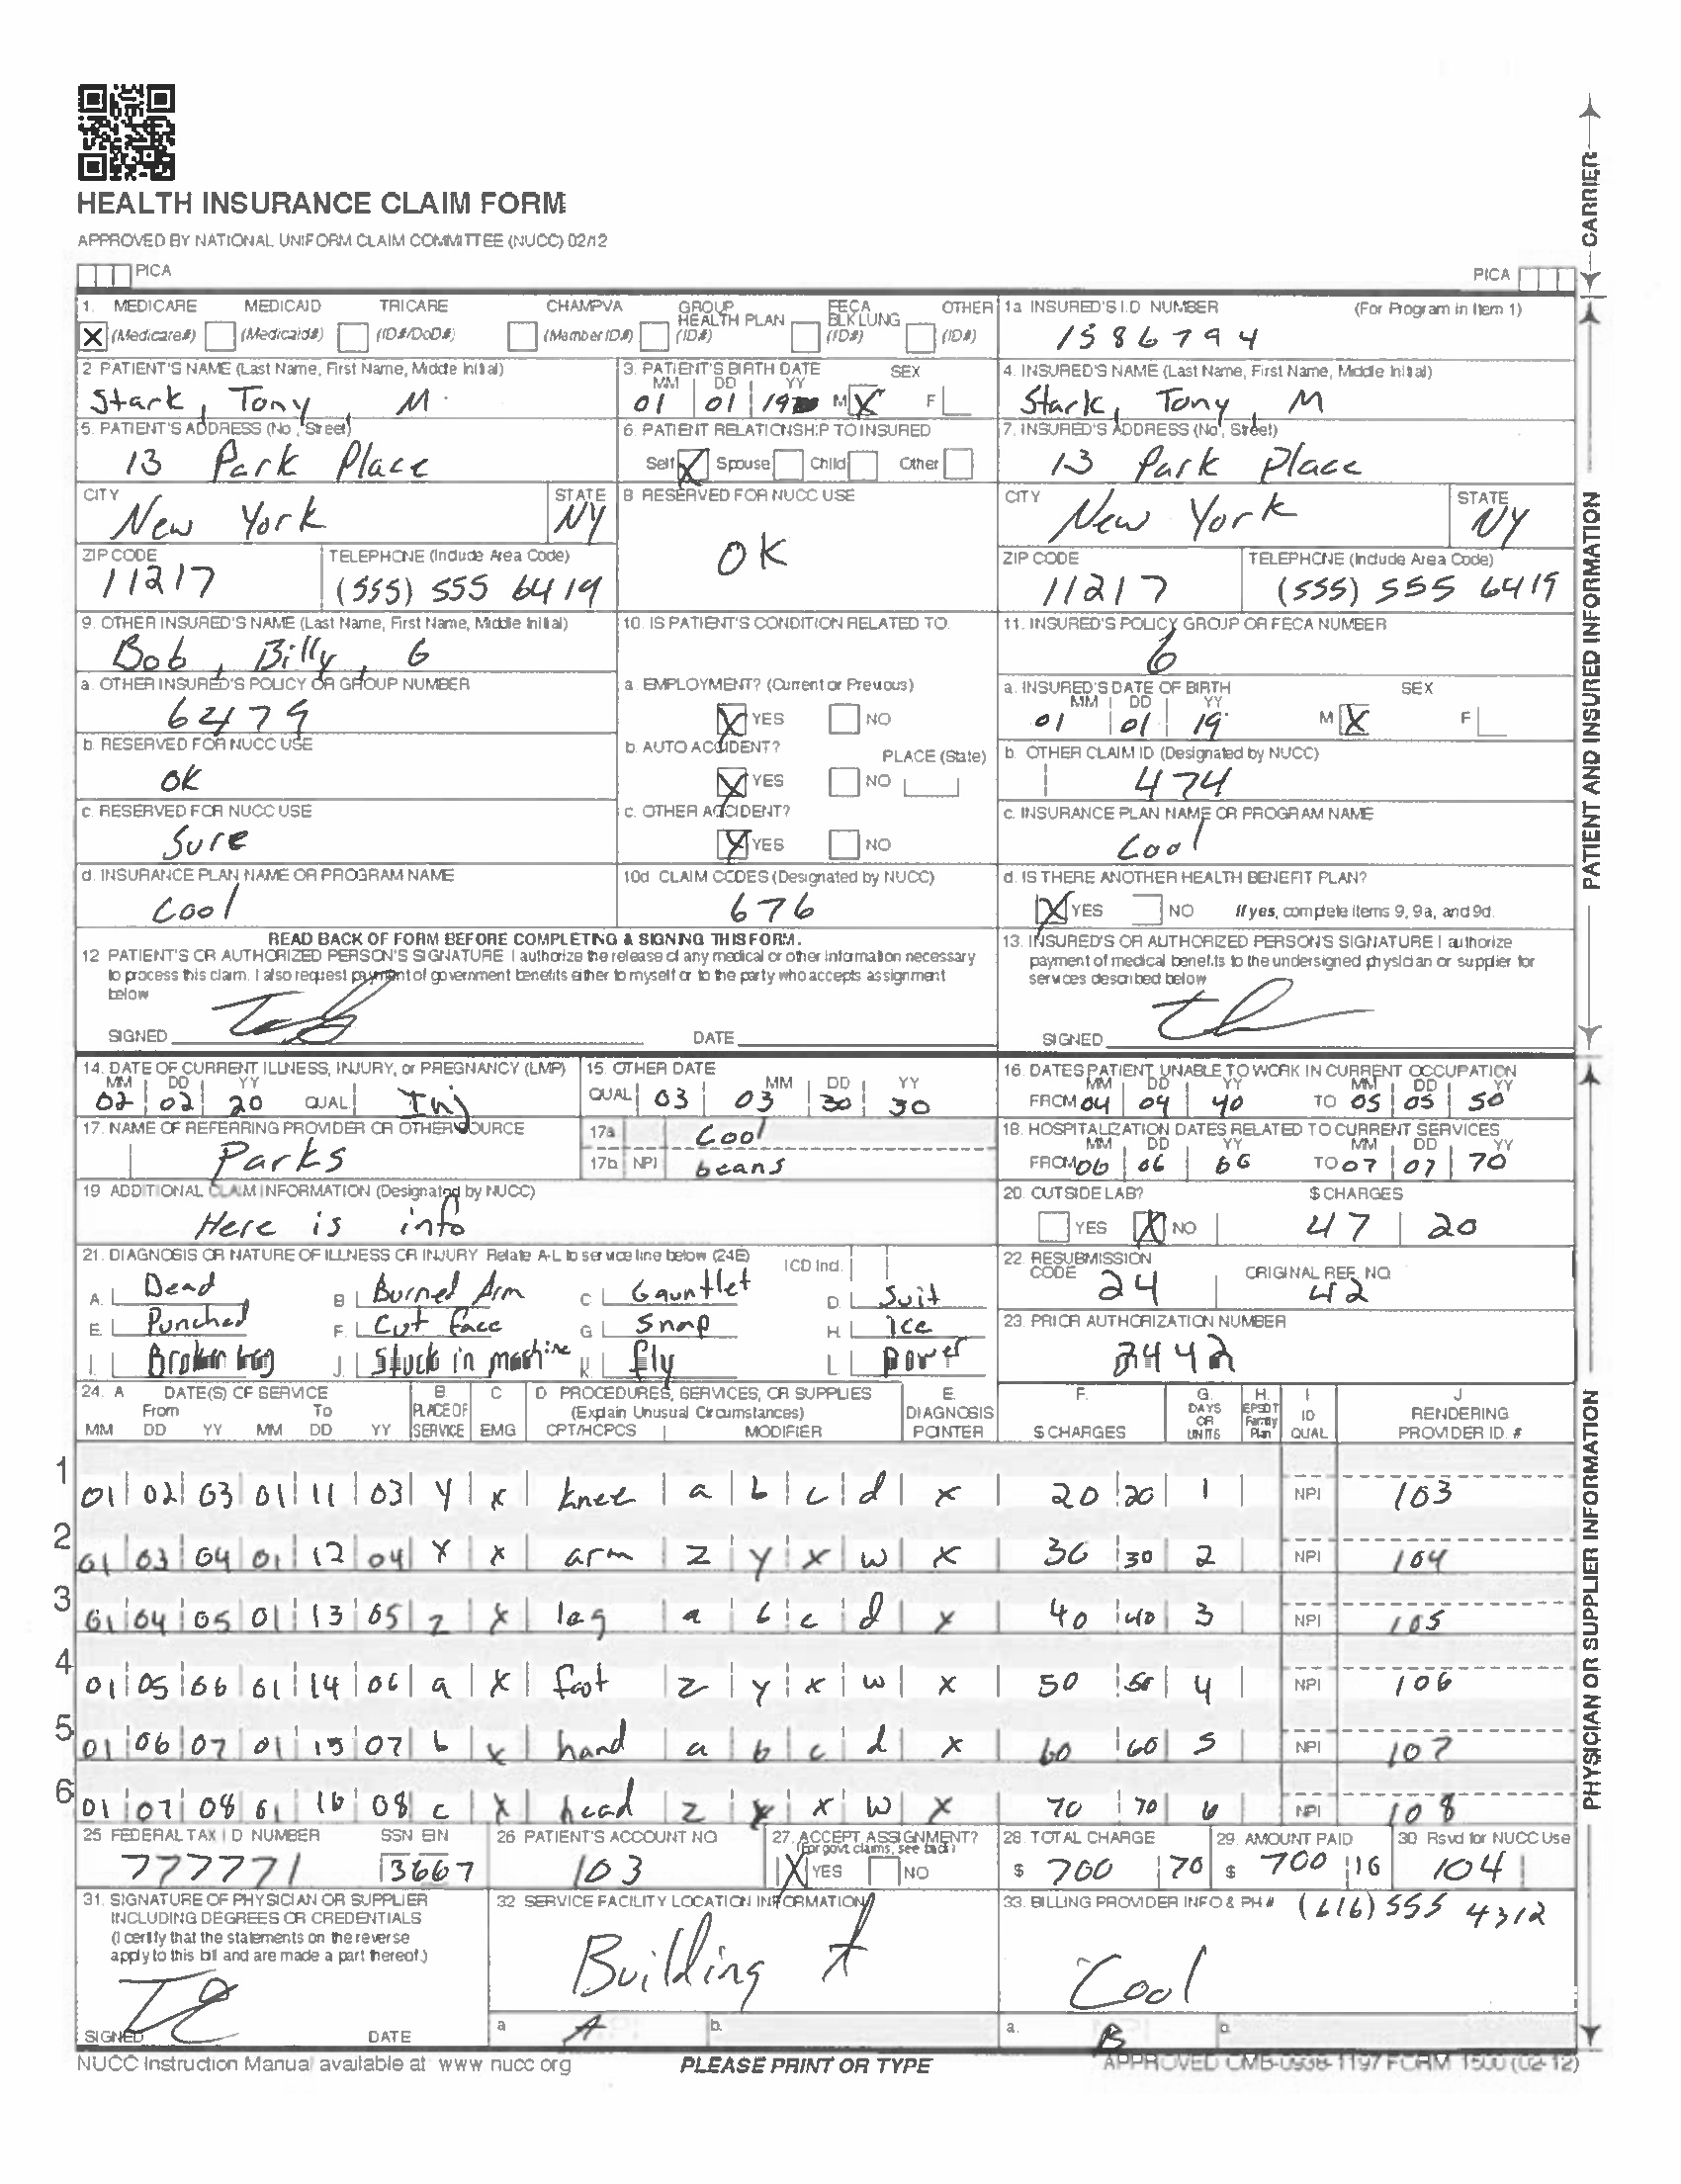 HEALTH INSURANCE CLAIM FORM
APPROVED BY NATIONAL UNIFORM CLAIM COMMITTEE (NUCC) 02/12
PICA PICA
CARRIER
1. MEDICARE MEDICAID TRICARE CHAMPVA GROUP HEALTH PLAN FECA BLK LUNG OTHER
X (Medicare#) (Medicaid#) (ID#/DoD#) (Member ID#) (ID#) (ID#) (ID#)
1a INSURED'S I.D NUMBER (For Program in Item 1)
1586794
2 PATIENT'S NAME (Last Name, First Name, Middle Initial)
Stark, Tony, M
3. PATIENT'S BIRTH DATE SEX
MM DD YY
01 01 19 M X F
4. INSURED'S NAME (Last Name, First Name, Middle Initial)
Stark, Tony, M
5. PATIENT'S ADDRESS (No, Street)
13 Park Place
6. PATIENT RELATIONSHIP TO INSURED
Self X Spouse Child Other
7. INSURED'S ADDRESS (No, Street)
13 Park Place
CITY STATE
New York NY
8 RESERVED FOR NUCC USE
OK
CITY STATE
New York NY
ZIP CODE TELEPHONE (Include Area Code)
11217 (555) 555 6419
ZIP CODE TELEPHONE (Include Area Code)
11217 (555) 555 6419
9. OTHER INSURED'S NAME (Last Name, First Name, Middle Initial)
Bob, Billy, G
10. IS PATIENT'S CONDITION RELATED TO
11. INSURED'S POLICY GROUP OR FECA NUMBER
6
a. OTHER INSURED'S POLICY OR GROUP NUMBER
6479
a. EMPLOYMENT? (Current or Previous)
X YES NO
a. INSURED'S DATE OF BIRTH SEX
MM DD YY
01 01 19 M X F
b. RESERVED FOR NUCC USE
OK
b. AUTO ACCIDENT? PLACE (State)
X YES NO
b. OTHER CLAIM ID (Designated by NUCC)
474
c. RESERVED FOR NUCC USE
Sure
c. OTHER ACCIDENT?
X YES NO
c. INSURANCE PLAN NAME OR PROGRAM NAME
Cool
d. INSURANCE PLAN NAME OR PROGRAM NAME
Cool
10d CLAIM CODES (Designated by NUCC)
676
d. IS THERE ANOTHER HEALTH BENEFIT PLAN?
X YES NO If yes, complete items 9, 9a, and 9d.
PATIENT AND INSURED INFORMATION
READ BACK OF FORM BEFORE COMPLETING & SIGNING THIS FORM.
12 PATIENT'S OR AUTHORIZED PERSON'S SIGNATURE I authorize the release of any medical or other information necessary
to process this claim. I also request payment of government benefits either to myself or to the party who accepts assignment
below
SIGNED DATE
13. INSURED'S OR AUTHORIZED PERSON'S SIGNATURE I authorize
payment of medical benefits to the undersigned physician or supplier for
services described below
SIGNED
14. DATE OF CURRENT ILLNESS, INJURY, or PREGNANCY (LMP)
MM DD YY
02 02 20 QUAL Inj
15. OTHER DATE
MM DD YY
QUAL 03 03 30 30
16. DATES PATIENT UNABLE TO WORK IN CURRENT OCCUPATION
MM DD YY MM DD YY
FROM 04 04 40 TO 05 05 50
17. NAME OF REFERRING PROVIDER OR OTHER SOURCE
Parks
17a Cool
17b NPI beans
18. HOSPITALIZATION DATES RELATED TO CURRENT SERVICES
MM DD YY MM DD YY
FROM 06 06 66 TO 07 07 70
19 ADDITIONAL CLAIM INFORMATION (Designated by NUCC)
Here is info
20. OUTSIDE LAB? $ CHARGES
YES X NO 47 20
21. DIAGNOSIS OR NATURE OF ILLNESS OR INJURY Relate A-L to service line below (24E) ICD Ind.
A. Dead B Burned Arm C Gauntlet D. Suit
E. Punched F. Cut face G Snap H. Ice
I. Broken leg J. Stuck in machine K. fly L power
22. RESUBMISSION CODE ORIGINAL REF. NO.
24 42
23. PRIOR AUTHORIZATION NUMBER
2442
24. A DATE(S) OF SERVICE B. C D PROCEDURES, SERVICES, OR SUPPLIES E. F. G. H. I J
From To PLACE OF (Explain Unusual Circumstances) DIAGNOSIS DAYS OR UNITS EPSDT Family Plan ID RENDERING
MM DD YY MM DD YY SERVICE EMG CPT/HCPCS MODIFIER POINTER $ CHARGES QUAL. PROVIDER ID. #
1 01 02 03 01 11 03 Y x knee a b c d x 20 20 1 NPI 103
2 01 03 04 01 12 04 Y x arm z y x w x 30 30 2 NPI 104
3 01 04 05 01 13 05 z x leg a b c d x 40 40 3 NPI 105
4 01 05 06 01 14 06 a x foot z y x w x 50 50 4 NPI 106
5 01 06 07 01 15 07 b x hand a b c d x 60 60 5 NPI 107
6 01 07 08 01 16 08 c x head z y x w x 70 70 6 NPI 108
25 FEDERAL TAX I D NUMBER SSN EIN
777771 3667
26 PATIENT'S ACCOUNT NO
103
27. ACCEPT ASSIGNMENT?
(For govt. claims, see back)
X YES NO
28. TOTAL CHARGE
$ 700 70
29. AMOUNT PAID
$ 700 16
30 Rsvd for NUCC Use
104
31. SIGNATURE OF PHYSICIAN OR SUPPLIER
INCLUDING DEGREES OR CREDENTIALS
(I certify that the statements on the reverse
apply to this bill and are made a part thereof.)
SIGNED DATE
32 SERVICE FACILITY LOCATION INFORMATION
Building A
a A b.
33. BILLING PROVIDER INFO & PH # (616) 555 4312
Cool
a. B
PHYSICIAN OR SUPPLIER INFORMATION
NUCC Instruction Manual available at www nucc org
PLEASE PRINT OR TYPE
APPROVED OMB-0938-1197 FORM 1500 (02-12)